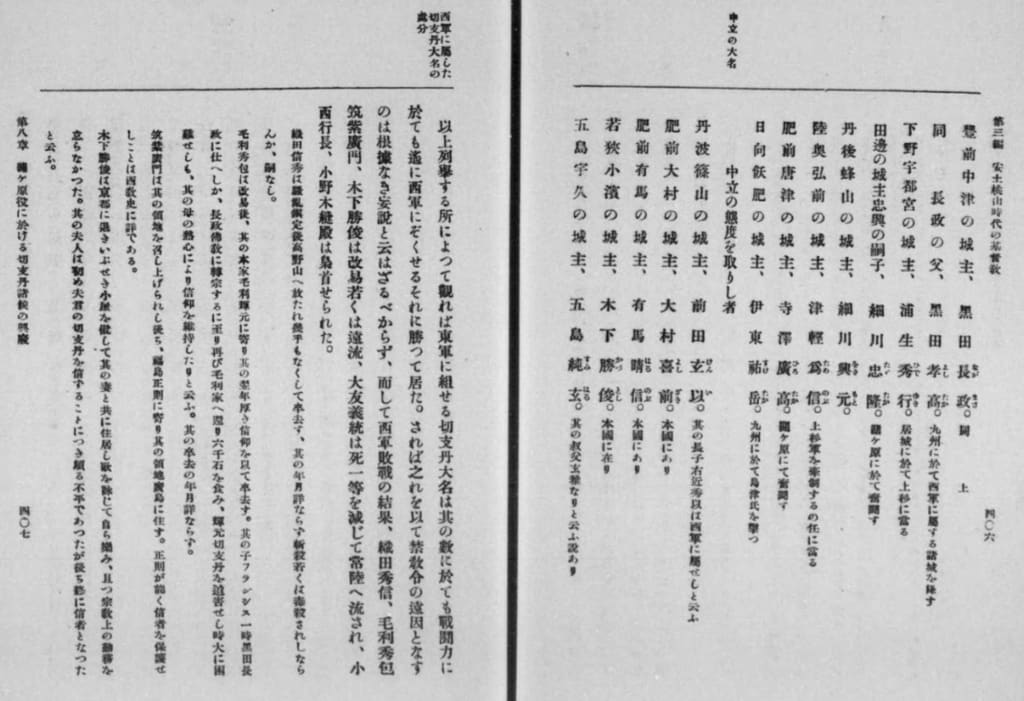 第三編　安土桃山時代の基督敎
四〇六
豐前中津の城主、黑田長政。同　上
同　長政の父、黑田孝高。九州に於て西軍に屬する諸城を降す
下野宇都宮の城主、蒲生秀行。居城に於て上杉に當る
田邊の城主忠興の嗣子、細川忠隆。關ヶ原に於て奮鬪す
丹後蜂山の城主、細川興元。
陸奧弘前の城主、津輕爲信。上杉軍を牽制するの任に當る
肥前唐津の城主、寺澤廣高。關ヶ原にて奮鬪す
日向飫肥の城主、伊東祐岳。九州に於て島津氏を擊つ
中立の大名
中立の態度を取りし者
丹波篠山の城主、前田玄以。其の長子右近秀以は西軍に屬せしと云ふ
肥前大村の城主、大村喜前。本國にあり
肥前有馬の城主、有馬晴信。本國にあり
若狹小濱の城主、木下勝俊。本國に在り
五島宇久の城主、五島純玄。其の叔父玄雅なりと云ふ說あり
西軍に屬した
切支丹大名の
處分
以上列擧する所によつて觀れば東軍に組せる切支丹大名は其の數に於ても戰鬪力に
於ても遙に西軍にぞくせるそれに勝つて居た。されば之れを以て禁敎令の遠因となす
のは根據なき妄說と云はざるべからず、而して西軍敗戰の結果、織田秀信、毛利秀包
筑紫廣門、木下勝俊は改易若くは遠流、大友義統は死一等を減じて常陸へ流され、小
西行長、小野木縫殿は梟首せられた。
織田信秀は戰亂鎭定後高野山へ放たれ幾干もなくして卒去す、其の年月詳ならず斬殺若くは毒殺されしなら
んか、嗣なし。
毛利秀包は改易後、其の本家毛利輝元に寄り其の翌年厚き信仰を以て卒去す。其の子フランシス一時黑田長
政に仕へしか、長政佛敎に轉宗するに至り再び毛利家へ還り六千石を食み、輝元切支丹を迫害せし時大に困
難せしも、其の母の熱心により信仰を維持したりと云ふ。其の卒去の年月詳ならず。
筑紫廣門は其の領地を召し上げられし後ち、福島正則に寄り其の領地廣島に住す。正則が能く信者を保護せ
しことは西敎史に詳である。
木下勝俊は京都に退きいぶせき小屋を徹して其の妻と共に住居し歌を詠じて自ら樂み、且つ宗敎上の勤務を
怠らなかつた。其の夫人は初め夫君の切支丹を信ずることにつき頗る不平であつたが後ち熱に信者となつた
と云ふ。
第八章　關ヶ原役に於ける切支丹諸侯の興廢
四〇七